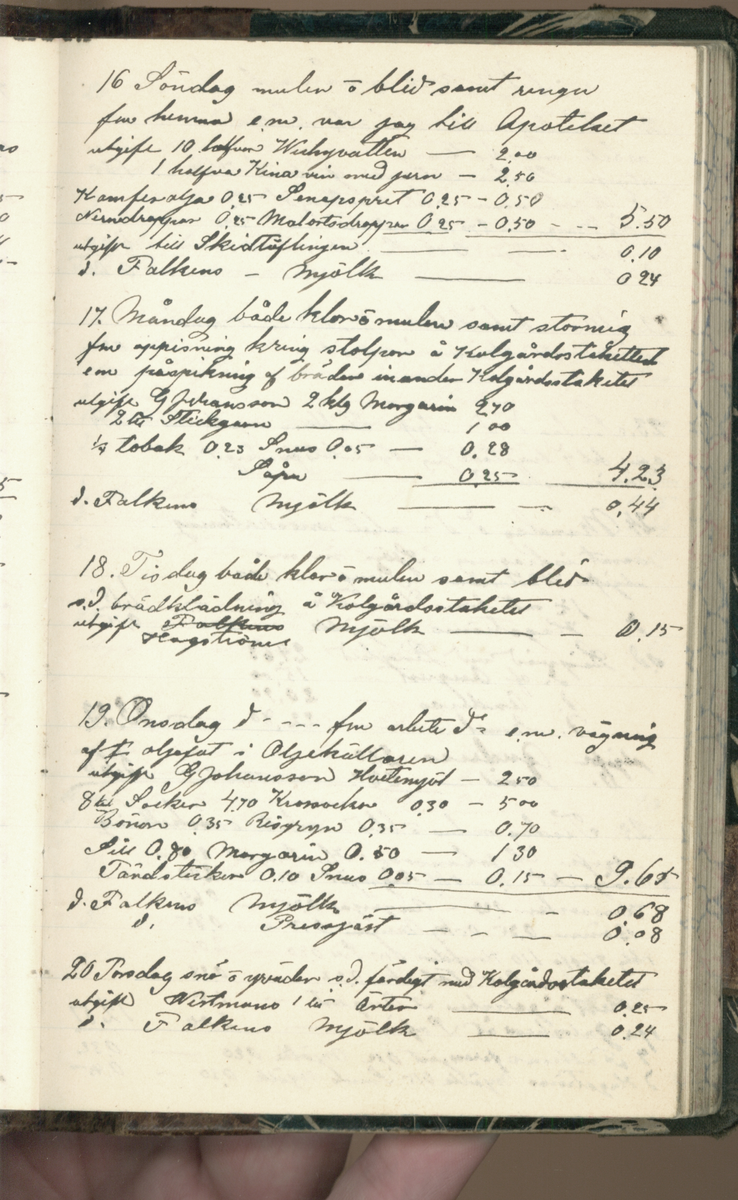 16 Söndag mulen o blid samt regn
fm hemma e.m. var jag till Apoteket
utgift 10 halfvor Wichyvatten — 2,00
1 halfva Kina vin med jern — 2,50
Kamferolja 0,25 Senapsprit 0,25 — 0,50
Nervdroppar 0,25 Malörtsdroppar 0,25 — 0,50 — 5.50
utgift till Skidtäflingen — 0,10
d. Falkens — Mjölk — 0 24
17. Måndag både klar o mulen samt stormig
fm kring stolpar å Kolgårdsstaketet
em påspikning af bräder Kolgårdsstaketet
utgift G Johansson 2 klg Margarin 2,70
2 Stickgarn — 1 00
¼ tobak 0,23 Snus 0,05 — 0,28
Såpa — 0,25 — 4.23
d. Falkens Mjölk — 0,44
18. Tisdag både klar o mulen samt blid
s.d. brädklädning å Kolgårdsstaketet
utgift Falkens Mjölk — 0.15
Hagströms
19. Onsdag d - - - fm arbete d° e.m. vägning
af oljefat i Oljekällaren
utgift G Johansson Hvetemjöl — 2 50
8 Socker 4,70 Krossocker 0,30 — 5 00
Bönor 0,35 Risgryn 0,35 — 0,70
Sill 0,80 Margarin 0.50 — 1 30
Tändstickor 0.10 Snus 0,05 — 0,15 — 9.65
d. Falkens Mjölk — 0,68
d. Pressjäst — 0,08
20 Torsdag snö o yrväder s.d. färdigt med Kolgårdsstaketet
utgift 1 Ärter — 0,25
d. Falkens Mjölk — 0,24